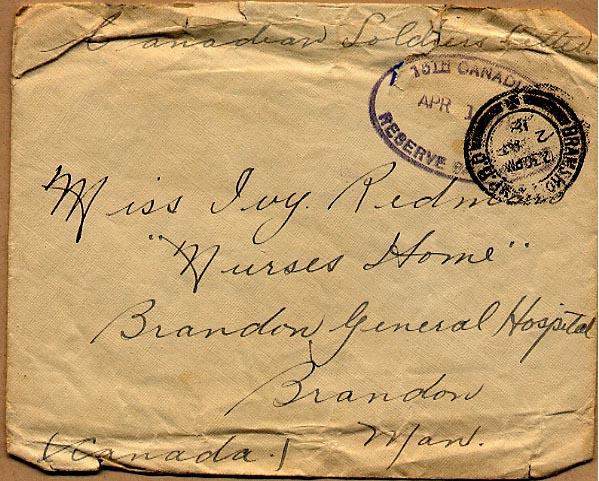 A Canadian Soldiers Letter
15TH CANADI
APR 1
RESERVE B
BRAMSHO
2.30PM
2 AP
18
Miss Ivy. Redm
"Nurses Home"
Brandon General Hospital
Brandon
Man.
(Canada.)